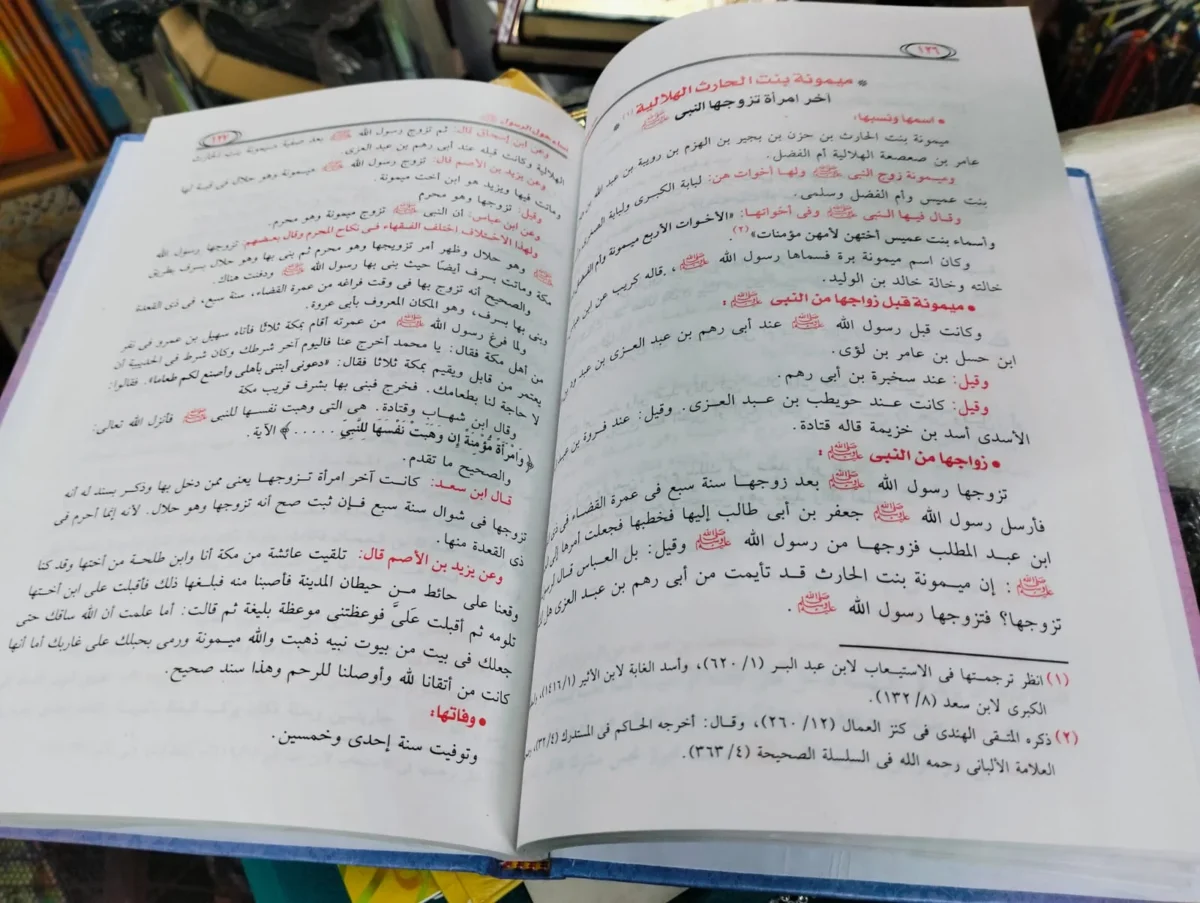 ١٢٦
* ميمونة بنت الحارث الهلالية (١)
آخر امرأة تزوجها النبى ﷺ *
• اسمها ونسبها:
ميمونة بنت الحارث بن حزن بن بجير بن الهزم بن رويبة بن عبد الله بن
عامر بن صعصعة الهلالية أم الفضل.
وميمونة زوج النبى ﷺ ولها أخوات هن: لبابة الكبرى ولبابة الصغرى
بنت عميس وأم الفضل وسلمى.
وقال فيها النبى ﷺ وفى أخواتها: «الأخوات الأربع ميمونة وأم الفضل
وأسماء بنت عميس أختهن لأمهن مؤمنات» (٢).
وكان اسم ميمونة برة فسماها رسول الله ﷺ، قاله كريب عن ابن
خالته وخالة خالد بن الوليد.
• ميمونة قبل زواجها من النبى ﷺ :
وكانت قبل رسول الله ﷺ عند أبى رهم بن عبد العزى بن عبد
ابن حسل بن عامر بن لؤى.
وقيل: عند سخبرة بن أبى رهم.
وقيل: كانت عند حويطب بن عبد العزى. وقيل: عند فروة بن عبد
الأسدى أسد بن خزيمة قاله قتادة.
• زواجها من النبى ﷺ :
تزوجها رسول الله ﷺ بعد زوجها سنة سبع فى عمرة القضاء فى
فأرسل رسول الله ﷺ جعفر بن أبى طالب إليها فخطبها فجعلت أمرها إلى
ابن عبد المطلب فزوجها من رسول الله ﷺ وقيل: بل العباس قال
ﷺ : إن ميمونة بنت الحارث قد تأيمت من أبى رهم بن عبد العزى هل لك
تزوجها؟ فتزوجها رسول الله ﷺ.
(١) انظر ترجمتها فى الاستيعاب لابن عبد البر (١/ ٦٢٠)، وأسد الغابة لابن الأثير (١/ ١٤١٦)،
الكبرى لابن سعد (٨/ ١٣٢).
(٢) ذكره المتقى الهندى فى كنز العمال (١٢/ ٢٦٠)، وقال: أخرجه الحاكم فى المستدرك (٤/ ٣٢)،
العلامة الألبانى رحمه الله فى السلسلة الصحيحة (٤/ ٣٦٣).
نساء حول الرسول ﷺ
١٢٧
وعن ابن إسحاق قال: ثم تزوج رسول الله ﷺ بعد صفية ميمونة بنت الحارث
الهلالية وكانت قبله عند أبى رهم بن عبد العزى.
وعن يزيد بن الأصم قال: تزوج رسول الله ﷺ ميمونة وهو حلال فى قبة لها
وماتت فيها ويزيد هو ابن أخت ميمونة.
وقيل: تزوجها وهو محرم
وعن ابن عباس: أن النبى ﷺ تزوج ميمونة وهو محرم.
ولهذا الاختلاف اختلف الفقهاء فى نكاح المحرم وقال بعضهم: تزوجها رسول الله
ﷺ وهو حلال وظهر أمر تزويجها وهو محرم ثم بنى بها وهو حلال بسرف بطريق
مكة وماتت بسرف أيضًا حيث بنى بها رسول الله ﷺ ودفنت هناك.
والصحيح أنه تزوج بها فى وقت فراغه من عمرة القضاء، سنة سبع، فى ذى القعدة
وبنى بها بسرف، وهو المكان المعروف بأبى عروة.
ولما فرغ رسول الله ﷺ من عمرته أقام بمكة ثلاثا فأتاه سهيل بن عمرو فى نفر
من أهل مكة فقال: يا محمد اخرج عنا فاليوم آخر شرطك وكان شرط فى الحديبية أن
يعتمر من قابل ويقيم بمكة ثلاثا فقال: «دعونى أبتنى بأهلى وأصنع لكم طعاما». فقالوا:
لا حاجة لنا بطعامك. فخرج فبنى بها بشرف قريب مكة
وقال ابن شهاب وقتادة. هى التى وهبت نفسها للنبى ﷺ فأنزل الله تعالى:
﴿وَامْرَأَةً مُّؤْمِنَةً إِن وَهَبَتْ نَفْسَهَا لِلنَّبِيِّ .....﴾ الآية.
والصحيح ما تقدم.
قال ابن سعد: كانت آخر امرأة تزوجها يعنى ممن دخل بها وذكر بسند له أنه
تزوجها فى شوال سنة سبع فإن ثبت صح أنه تزوجها وهو حلال. لأنه إنما أحرم فى
ذى القعدة منها.
وعن يزيد بن الأصم قال: تلقيت عائشة من مكة أنا وابن طلحة من أختها وقد كنا
وقعنا على حائط من حيطان المدينة فأصبنا منه فبلغها ذلك فأقبلت على ابن أختها
تلومه ثم أقبلت عَلىَّ فوعظتنى موعظة بليغة ثم قالت: أما علمت أن الله ساقك حتى
جعلك فى بيت من بيوت نبيه ذهبت والله ميمونة ورمى بحبلك على غاربك أما أنها
كانت من أتقانا لله وأوصلنا للرحم وهذا سند صحيح.
• وفاتها:
وتوفيت سنة إحدى وخمسين.